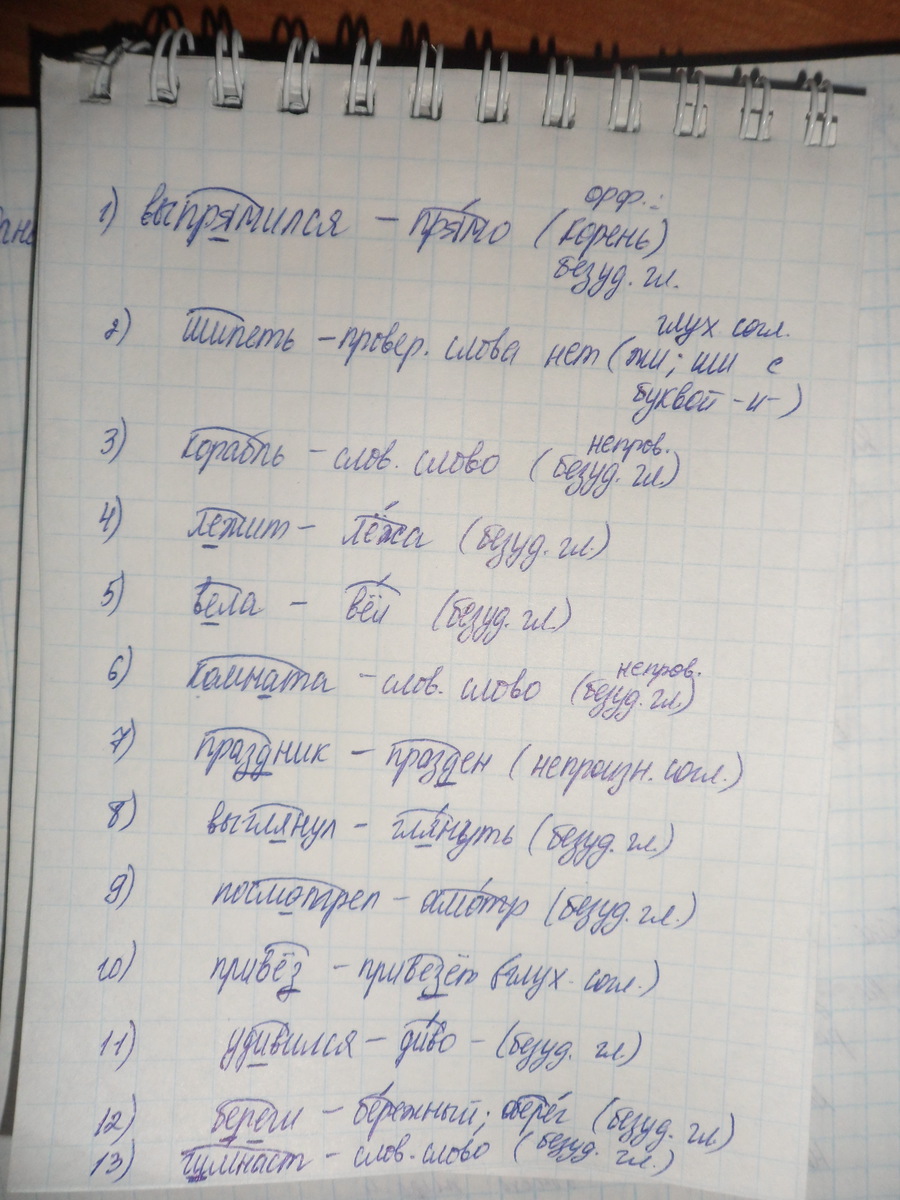 орф.:
1) выпрямился – прямо (корень)
безуд. гл.
глух. согл.
2) шипеть – провер. слова нет (жи; ши с
буквой -и-)
непров.
3) корабль – слов. слово (безуд. гл.)
4) лежит – лёжа (безуд. гл.)
5) вела – вёл (безуд. гл.)
непров.
6) комната – слов. слово (безуд. гл.)
7) праздник – празден (непроизн. согл.)
8) выглянул – глянуть (безуд. гл.)
9) посмотрел – смотр (безуд. гл.)
10) привёз – привезёт (глух. согл.)
11) удивился – диво – (безуд. гл.)
12) береги – бережный; оберег (безуд. гл.)
13) гимнаст – слов. слово (безуд. гл.)